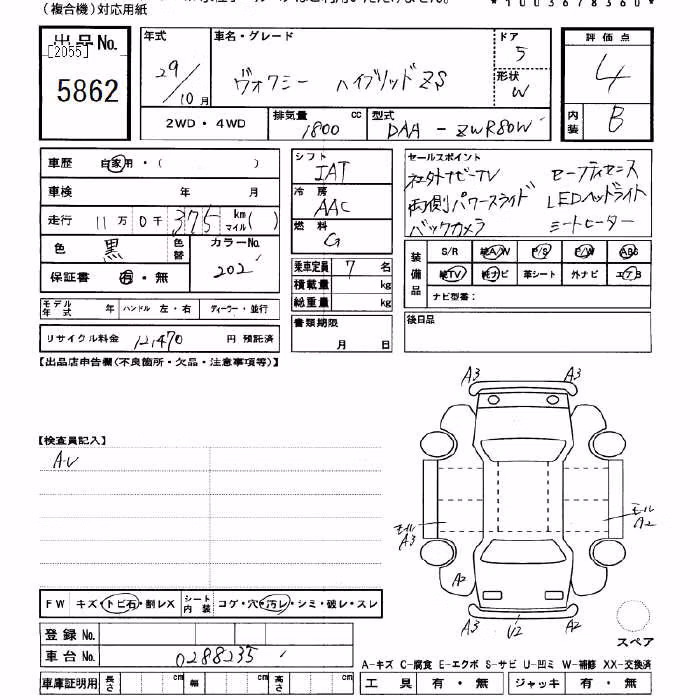 (複合機)対応用紙
*1003678360*
出品No.
[2055]
5862
年式
29/10月
車名・グレード
ヴォクシー ハイブリッドZS
ドア
5
形状
W
評価点
4
内装
B
2WD・4WD
排気量
1800
cc
型式
DAA-ZWR80W
車歴 自家用・( )
車検 年 月
走行 11万0千375 km マイル( )
色 黒 色替
カラーNo.
202
保証書 有・無
モデル年式 年 ハンドル 左・右 ディーラー・並行
リサイクル料金 12,470 円 預託済
シフト
IAT
冷房
AAC
燃料
G
乗車定員 7 名
積載量 kg
総重量 kg
書類期限
月 日
セールスポイント
社外ナビTV セーフティセンス
両側パワースライド LEDヘッドライト
バックカメラ シートヒーター
装備品
S/R 純A/W P/S P/W ABS
純TV 純ナビ 革シート 外ナビ エアB
ナビ型番:
後日品
【出品店申告欄(不良箇所・欠品・注意事項等)】
【検査員記入】
A・U
A3 A3
モール A3
モール A2
A2
A3 U2 A2
スペア
FW キズ・トビ石・割レX シート内装 コゲ・穴・汚レ・シミ・破レ・スレ
登録No.
車台No. 0288235
車庫証明用 長さ cm 幅 cm 高さ cm
A-キズ C-腐食 E-エクボ S-サビ U-凹ミ W-補修 XX-交換済
工具 有・無 ジャッキ 有・無